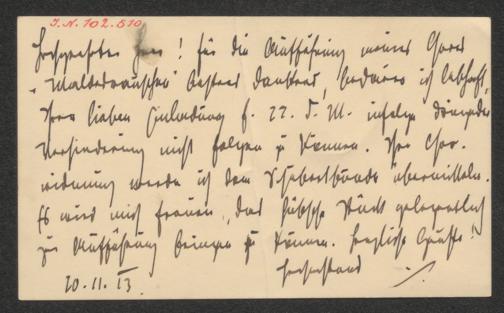 J.N. 102.510
Hochgeehrter Herr! Für die Aufführung meines Chores
"Waldesrauschen" bestens dankend, bedaure ich lebhaft,
Ihrer lieben Einladung f. 22. d. M. infolge dringender
Verhinderung nicht folgen zu können. Ihre Chor-
widmung werde ich dem Schubertbunde übermitteln.
Es wird mich freuen, das hübsche Stück gelegentlich
zur Aufführung bringen zu können. Herzliche Grüße!
20.11.13.